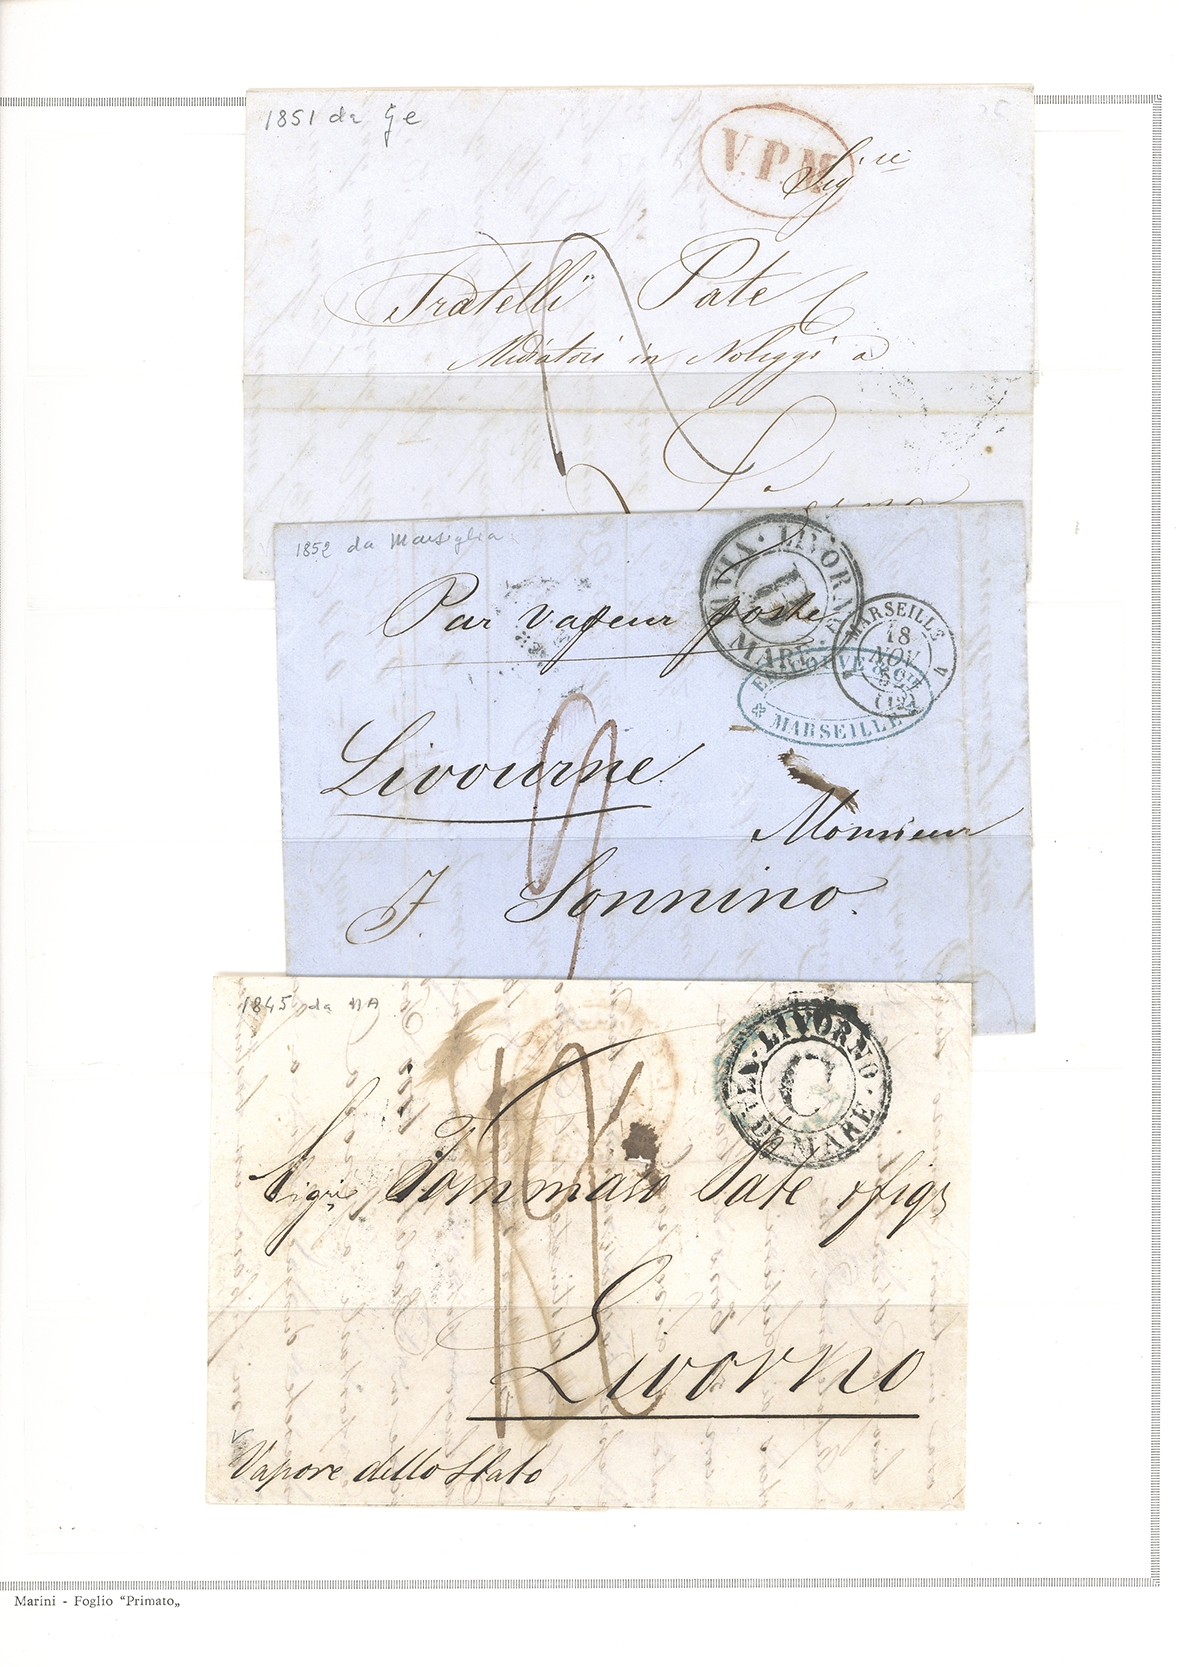 1851 da Ge
V.P.M
Sig.re
Fratelli Pate
Mediatori in Noleggi a
1852 da Marsiglia
Par vapeur poste
VIA · LIVORNO
D
MARE
MARSEILLE
18
NOV
52
MARSEILLE
Livourne
Monsieur
J. Sonnino.
1845 da NA
LIVORNO
C
DI MARE
Sigri Tommaso Pate e figi
Livorno
Vapore dello Stato
Marini - Foglio “Primato„